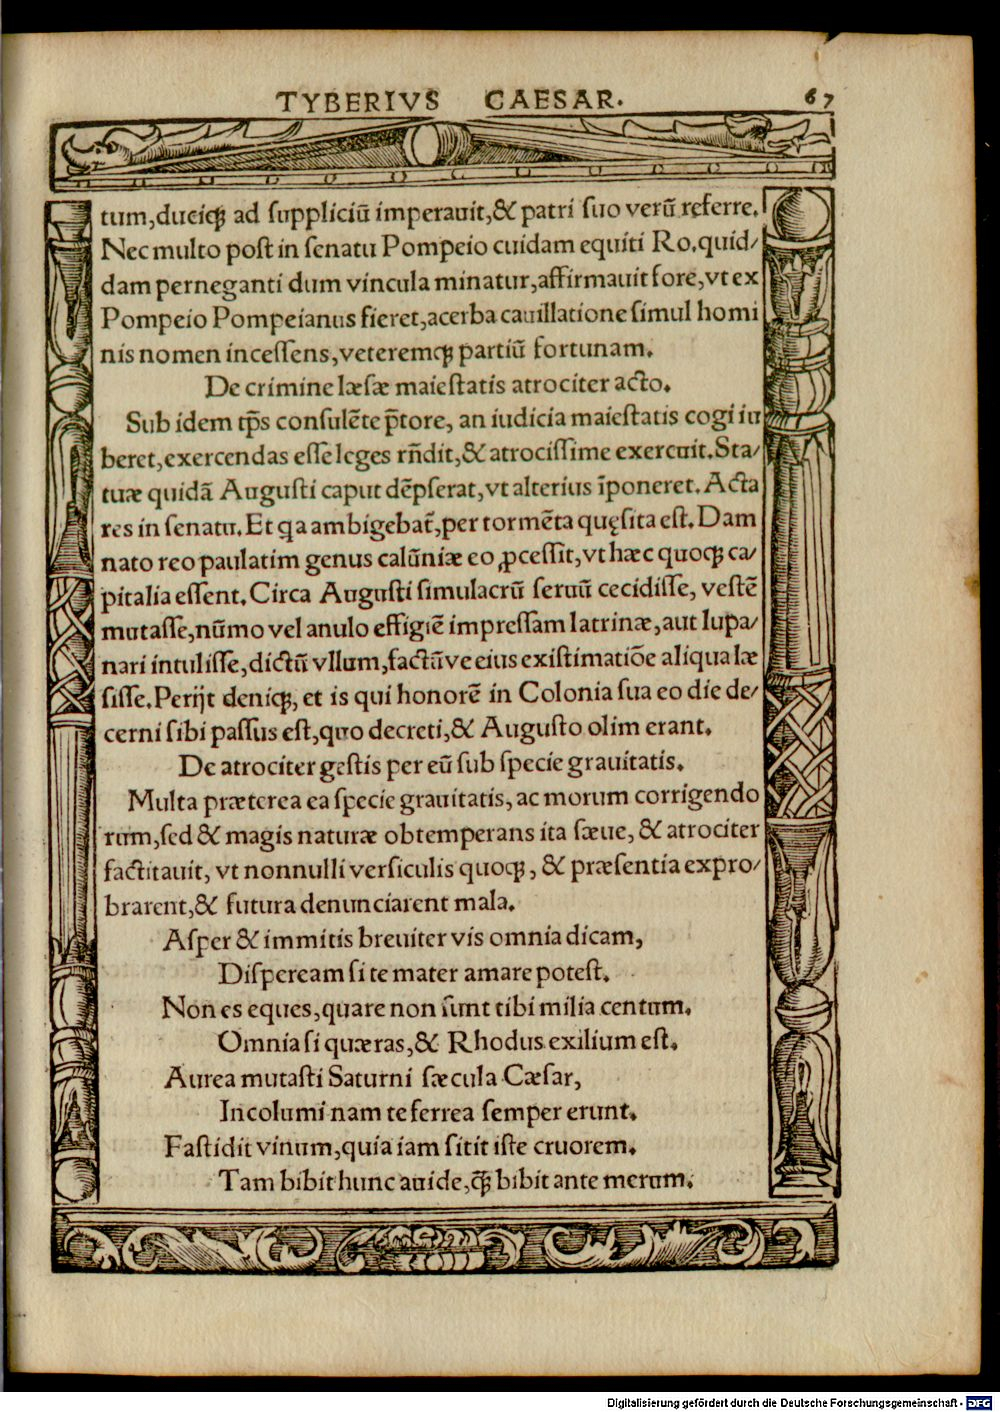 TYBERIVS CAESAR. 67
tum,duciqꝫ ad ſuppliciũ imperauit,& patri ſuo verũ referre.
Nec multo poſt in ſenatu Pompeio cuidam equiti Ro.quid/
dam perneganti dum vincula minatur,affirmauit fore,vt ex
Pompeio Pompeianus fieret,acerba cauillatione ſimul homi
nis nomen inceſſens,veteremqꝫ partiũ fortunam.
De crimine læſæ maieſtatis atrociter acto.
Sub idem tp̃s conſulẽte p̃tore, an iudicia maieſtatis cogi iu
beret,exercendas eſſe leges rñdit,& atrociſſime exercuit.Sta/
tuæ quidã Auguſti caput dẽpſerat,vt alterius ĩponeret.Acta
res in ſenatu.Et qa ambigebat̃,per tormẽta quęſita eſt.Dam
nato reo paulatim genus calũniæ eo ꝓceſſit,vt hæc quoqꝫ ca/
pitalia eſſent.Circa Auguſti ſimulacrũ ſeruũ cecidiſſe, veſtẽ
mutaſſe,nũmo vel anulo effigiẽ impreſſam latrinæ,aut lupa/
nari intuliſſe,dictũ vllum,factũve eius exiſtimatiõe aliqua læ
ſiſſe.Perijt deniqꝫ, et is qui honorẽ in Colonia ſua eo die de/
cerni ſibi paſſus eſt,quo decreti,& Auguſto olim erant.
De atrociter geſtis per eũ ſub ſpecie grauitatis.
Multa præterea ea ſpecie grauitatis, ac morum corrigendo
rum,ſed & magis naturæ obtemperans ita ſæue, & atrociter
factitauit, vt nonnulli verſiculis quoqꝫ, & præſentia expro/
brarent,& futura denunciarent mala.
Aſper & immitis breuiter vis omnia dicam,
Diſpeream ſi te mater amare poteſt.
Non es eques,quare non ſunt tibi milia centum.
Omnia ſi quæras,& Rhodus exilium eſt.
Aurea mutaſti Saturni ſæcula Cæſar,
Incolumi nam te ferrea ſemper erunt.
Faſtidit vinum,quia iam ſitit iſte cruorem.
Tam bibit hunc auide,q̃ꝫ bibit ante merum.
Digitalisierung gefördert durch die Deutsche Forschungsgemeinschaft - DFG